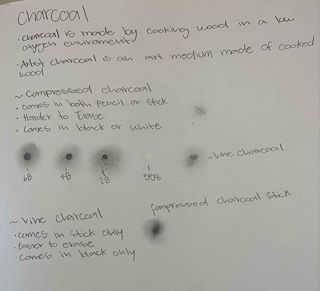 charcoal
· charcoal is made by cooking wood in a low
oxygen enviroment
· Artist charcoal is an art medium made of cooked
wood
~ Compressed charcoal
· comes in both pencil or stick
· Harder to Erase
· Comes in black or white
~ Vine charcoal
6B 4B 2B
compressed charcoal stick
~ Vine charcoal
· comes in stick only
· Easier to erase
· Comes in black only